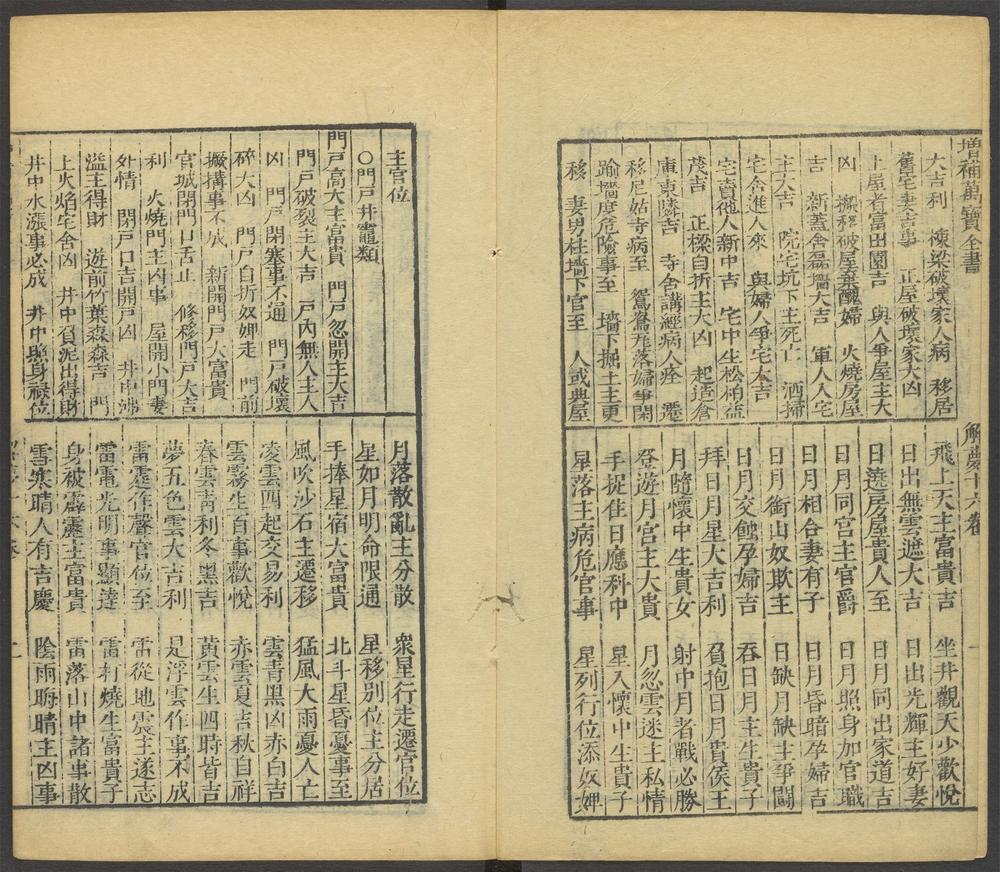 增補萬寶全書
解夢十六卷
一
大吉利　棟梁破壞家人病　移居
舊宅妻吉事　正屋破壞家大凶
上屋者富田園吉　與人爭屋主大
凶　搬移破屋棄醜婦　火燒房屋
吉　新蓋舍磊墻大吉　軍人入宅
主大吉　院宅坑下主死亡　洒掃
宅舍進人來　與婦人爭宅大吉
宅賣他人新中吉　宅中生松柏益
茂吉　正樑自折主大凶　起造倉
庫東隣吉　寺舍講經病人痊　遷
移尼姑寺病至　鴛鴦瓦落婦爭鬧
踰墻度危險事至　墻下掘土主更
移　妻男在墻下官至　人或典屋
飛上天主富貴吉　坐井觀天少歡悅
日出無雲遮大吉　日出光輝主好妻
日遶房屋貴人至　日月同出家道吉
日月同宮主官爵　日月照身加官職
日月相合妻有子　日月昏暗孕婦吉
日月銜山奴欺主　日缺月缺主爭鬪
日月交蝕孕婦吉　吞日月主生貴子
拜日月星大吉利　負抱日月貴侯王
月隨懷中生貴女　射中月者戰必勝
登遊月宮主大貴　月忽雲迷主私情
手捉住日應科中　星入懷中生貴子
星落主病危官事　星列行位添奴婢
主官位
○門戶井竈類
門戶高大主富貴　門戶忽開主大吉
門戶破裂主大吉　戶內無人主大
凶　門戶閉塞事不通　門戶破壞
碎大凶　門戶自折奴婢走　門前
搬搆事不成　新開門戶大富貴
官城閉門口舌止　修移門戶大吉
利　火燒門主凶事　屋開小門妻
外情　閉戶口吉開戶凶　井中沸
溢主得財　遊前竹葉森森吉　門
上火焰宅舍凶　井中負泥出得財
井中水漲事必成　井中照身祿位
月落散亂主分散　衆星行走遷官位
星如月明命限通　星移別位主分居
手捧星宿大富貴　北斗星昏憂事至
風吹沙石主遷移　猛風大雨憂人亡
凌雲四起交易利　雲青黑凶赤白吉
雲霧生百事歡悅　赤雲夏吉秋自祥
春雲青利冬黑吉　黃雲生四時皆吉
夢五色雲大吉利　足浮雲作事不成
雷霆作聲官位至　雷從地震主遂志
雷電光明事顯達　雷村燒生富貴子
身被霹靂主富貴　雷落山中諸事散
雪寒晴人有吉慶　陰雨晦晴主凶事